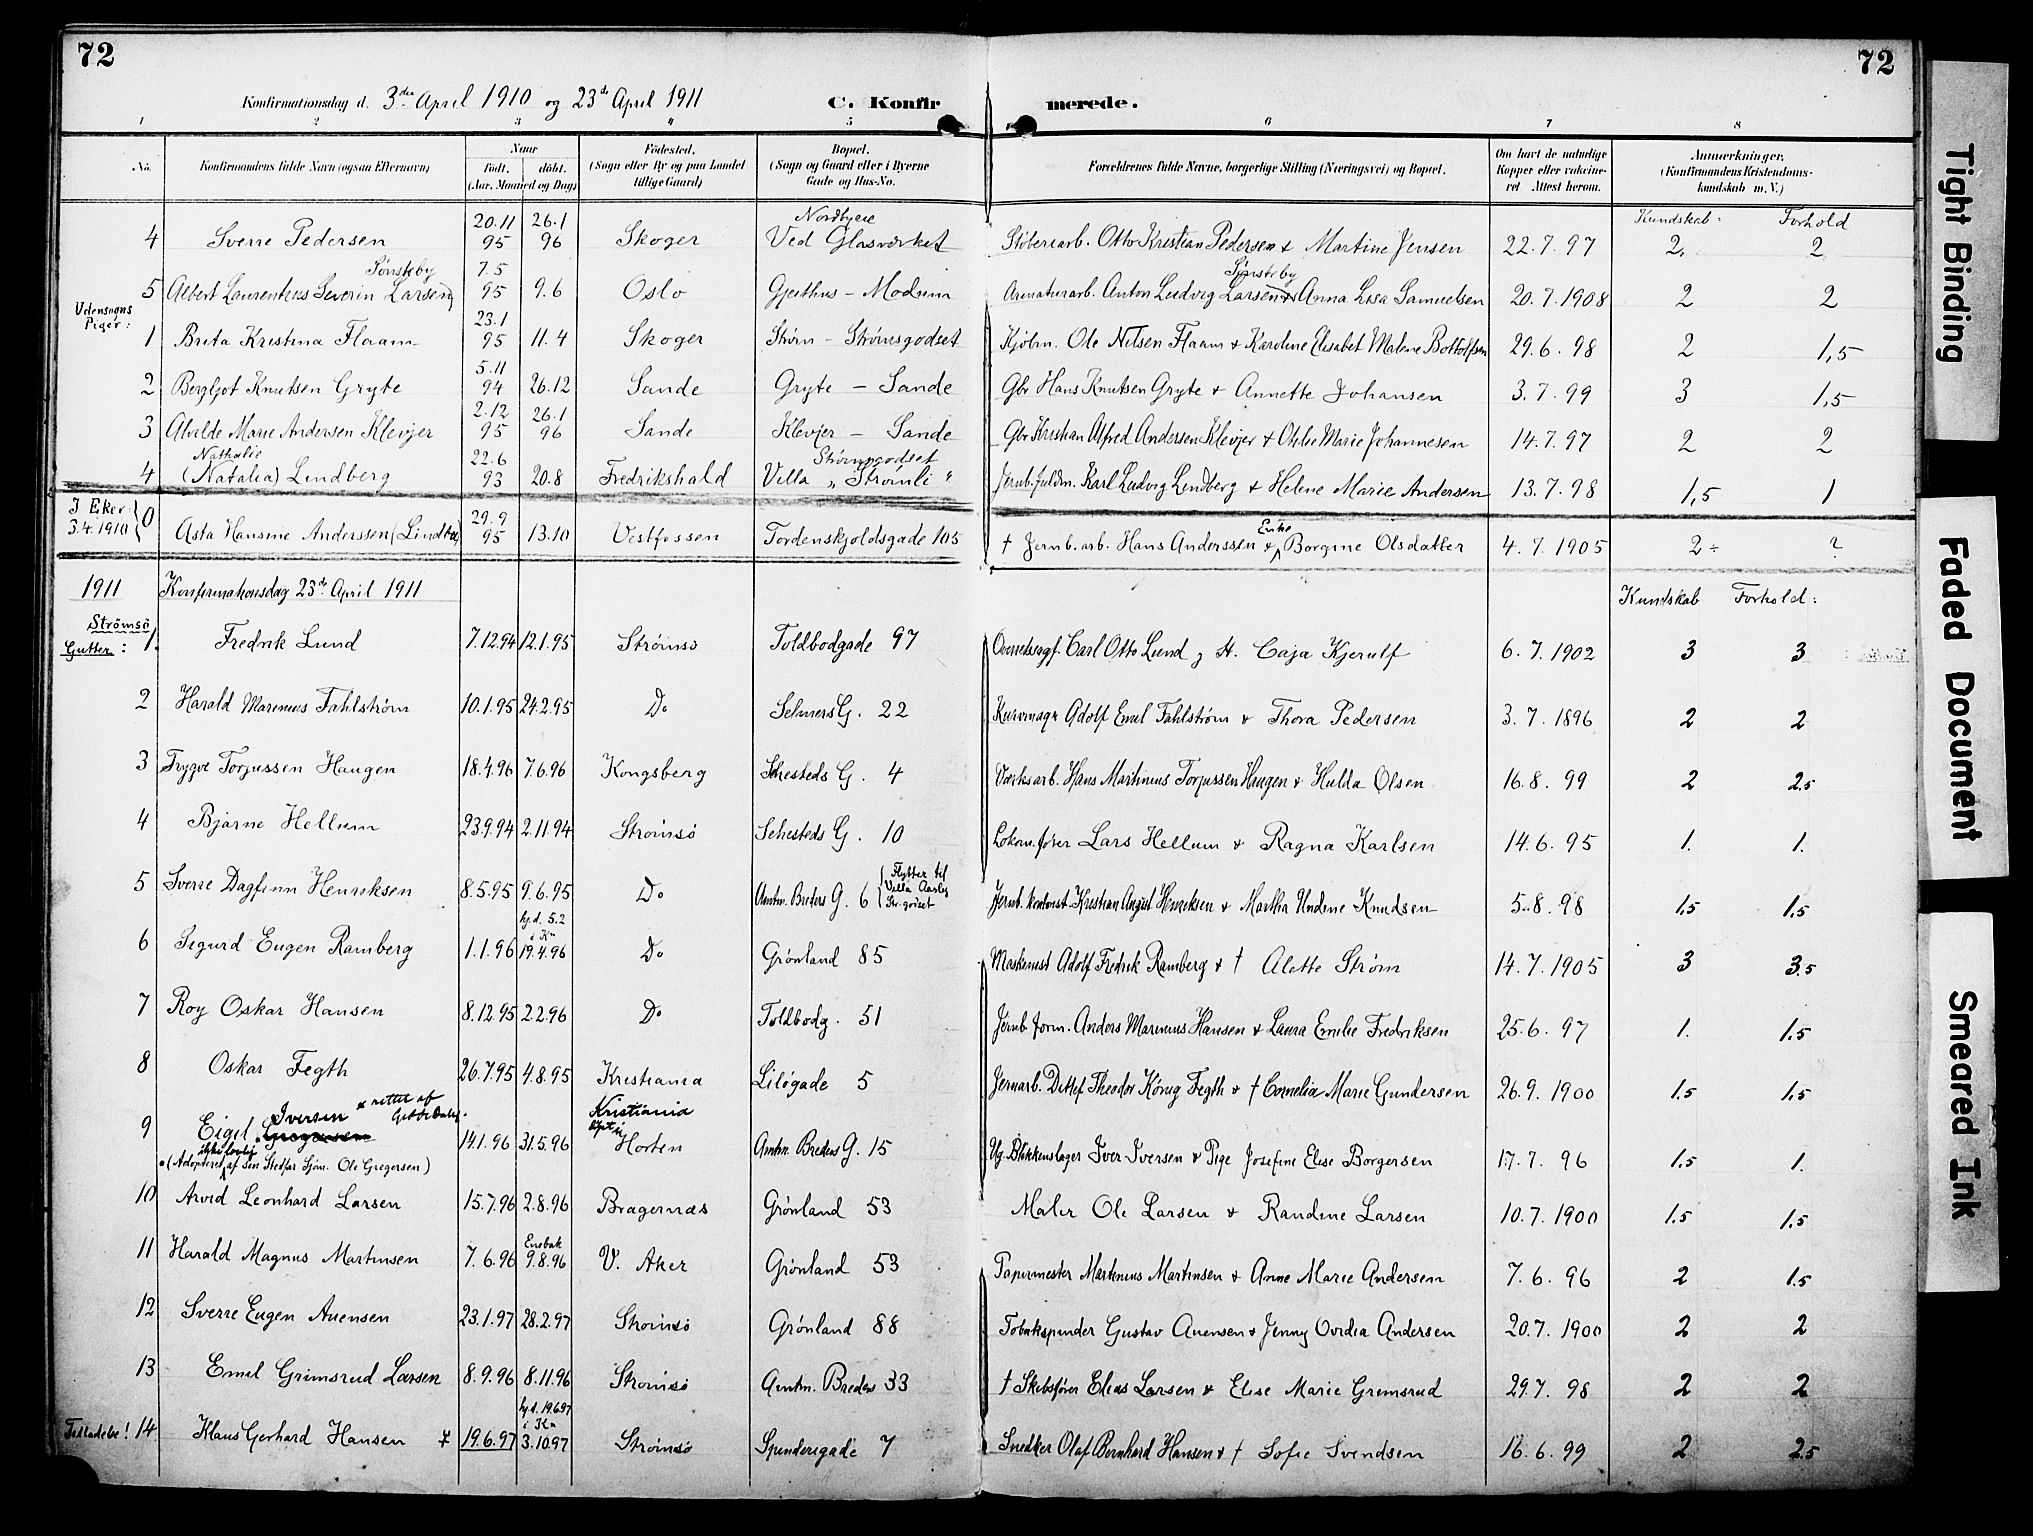 72
72
Konfirmationsdag d. 3die April 1910 og 23de April 1911
C. Konfirmerede.
1 2 3 4 5 6 7 8
No. Konfirmandens fulde Navn (ogsaa Efternavn) Naar født. døbt. (Aar, Maaned og Dag) Fødested. (Sogn eller By og paa Landet tillige Gaard) Bopæl. (Sogn og Gaard eller i Byerne Gade og Hus-No. Forældrenes fulde Navne, borgerlige Stilling (Næringsvei) og Bopæl. Om havt de naturlige Kopper eller vaccineret Attest herom. Anmærkninger. (Konfirmandens Kristendomskundskab m. V.)
Kundskab: Forhold
4 Sverre Pedersen 20.11 95 26.1 96 Skoger Nordbyeie Ved Glasværket Støberiarb. Otto Kristian Pedersen & Martine Jensen 22.7.97 2. 2
5 Albert Laurentius Severin Larsen) Sønsteby 7.5 95 9.6 Oslo Gjethus - Modum Armaturarb. Anton Ludvig Larsen Sønsteby & Anna Lisa Samuelsen 20.7.1908 2 2
Udensogns Piger:
1 Brita Kristina Flaam 23.1 95 11.4 Skoger Strøm - Strømsgodset Kjøbm. Ole Nilsen Flaam & Karoline Elisabet Malene Bottolfsen 29.6.98 2 1,5
2 Bergljot Knutsen Gryte 5.11 94 26.12 Sande Gryte - Sande Gbr Hans Knutsen Gryte & Annette Johansen 3.7.99 3 1,5
3 Alvilde Marie Andersen Klevjer 2.12 95 26.1 96 Sande Klevjer - Sande Gbr Kristian Alfred Andersen Klevjer & Othilie Marie Johannesen 14.7.97 2 2
4 Nathalie (Natalia) Lindberg 22.6 93 20.8 Fredrikshald Strømsgodset Villa "Strømli" Jernb.fuldm. Karl Ludvig Lindberg & Helene Marie Andersen 13.7.98 1,5 1
I Eker 3.4.1910 } 0 Asta Hansine Anderssen (Lindboe) 29.9 95 13.10 Vestfossen Tordenskjoldsgade 105 † Jernb.arb. Hans Anderssen & Enke Borgine Olsdatter 4.7.1905 2÷ ?
1911 Konfirmationsdag 23de April 1911 Kundskab Forhold:
Strømsö Gutter:
1. Fredrik Lund 7.12.94 12.1.95 Strömsö Toldbodgade 97 Overretssagf. Carl Otto Lund & H. Caja Kjerulf 6.7.1902 3 3
2 Harald Marinius Fahlström 10.1.95 24.2.95 Do Selmers G. 22 Kurvmagr Adolf Emil Fahlström & Thora Pedersen 3.7.1896 2 2
3 Trygve Torjussen Haugen 18.4.96 7.6.96 Kongsberg Sehesteds G. 4 Værksarb. Hans Martinius Torjussen Haugen & Hulda Olsen 16.8.99 2 2.5
4 Bjarne Hellum 23.9.94 2.11.94 Strömsö Sehesteds G. 10 Lokom.fører Lars Hellum & Ragna Karlsen 14.6.95 1. 1.
5 Sverre Dagfinn Henriksen 8.5.95 9.6.95 Do Amtm. Breders G. 6 { Flytter til Villa Aasly Str.godset Jernb. kontorist Kristian August Henriksen & Martha Undine Knudsen 5.8.98 1,5 1.5
6 Sigurd Eugen Ramberg 1.1.96 hj.d. 5.2 i Kn 19.4.96 Do Grönland 85 Maskinist Adolf Fredrik Ramberg & † Alette Ström 14.7.1905 3 3.5
7 Roy Oskar Hansen 8.12.95 2.2.96 Do Toldbodg. 51 Jernb. form. Anders Marinius Hansen & Laura Emilie Fredriksen 25.6.97 1. 1.5
8 Oskar Fegth 26.7.95 4.8.95 Kristiania Lilögade 5 Jernarb. Detlef Theodor König Fegth & † Cornelia Marie Gundersen 26.9.1900 1.5 1,5
9 Eigil Gregersen Iversen * rettet af 14.1.96 31.5.96 Kristiania döpt i Horten Amtm. Breders G. 15 Ug. Blikkenslager Iver Iversen & Pige Josefine Elise Borgersen 17.7.96 1.5 1.
(Adopteret ikke lovlig af sin Stedfar Sjöm. Ole Gregersen)
10 Arvid Leonhard Larsen 15.7.96 2.8.96 Bragernæs Grönland 53 Maler Ole Larsen & Randine Larsen 10.7.1900 1.5 1.5
11 Harald Magnus Martinsen 7.6.96 Enebak 9.8.96 V. Aker Grönland 53 Papirmester Martinius Martinsen & Anne Marie Andersen 7.6.96 2 1.5
12 Sverre Eugen Auensen 23.1.97 28.2.97 Strömsö Grönland 88 Tobakspinder Gustav Auensen & Jenny Ovidia Andersen 20.7.1900 2 2
13 Emil Grimsrud Larsen 8.9.96 8.11.96 Strömsö Amtm. Breders 33 † Skibsfører Elias Larsen & Elise Marie Grimsrud 29.7.98 2 2
14 Klaus Gerhard Hansen 19.6.97 hj.d. 19.6.97 i Kn 3.10.97 Strömsö Spinderigade 7 Snedker Olaf Bernhard Hansen & † Sofie Svendsen 16.6.99 2 2.5
Tight Binding
Faded Document
Smeared Ink